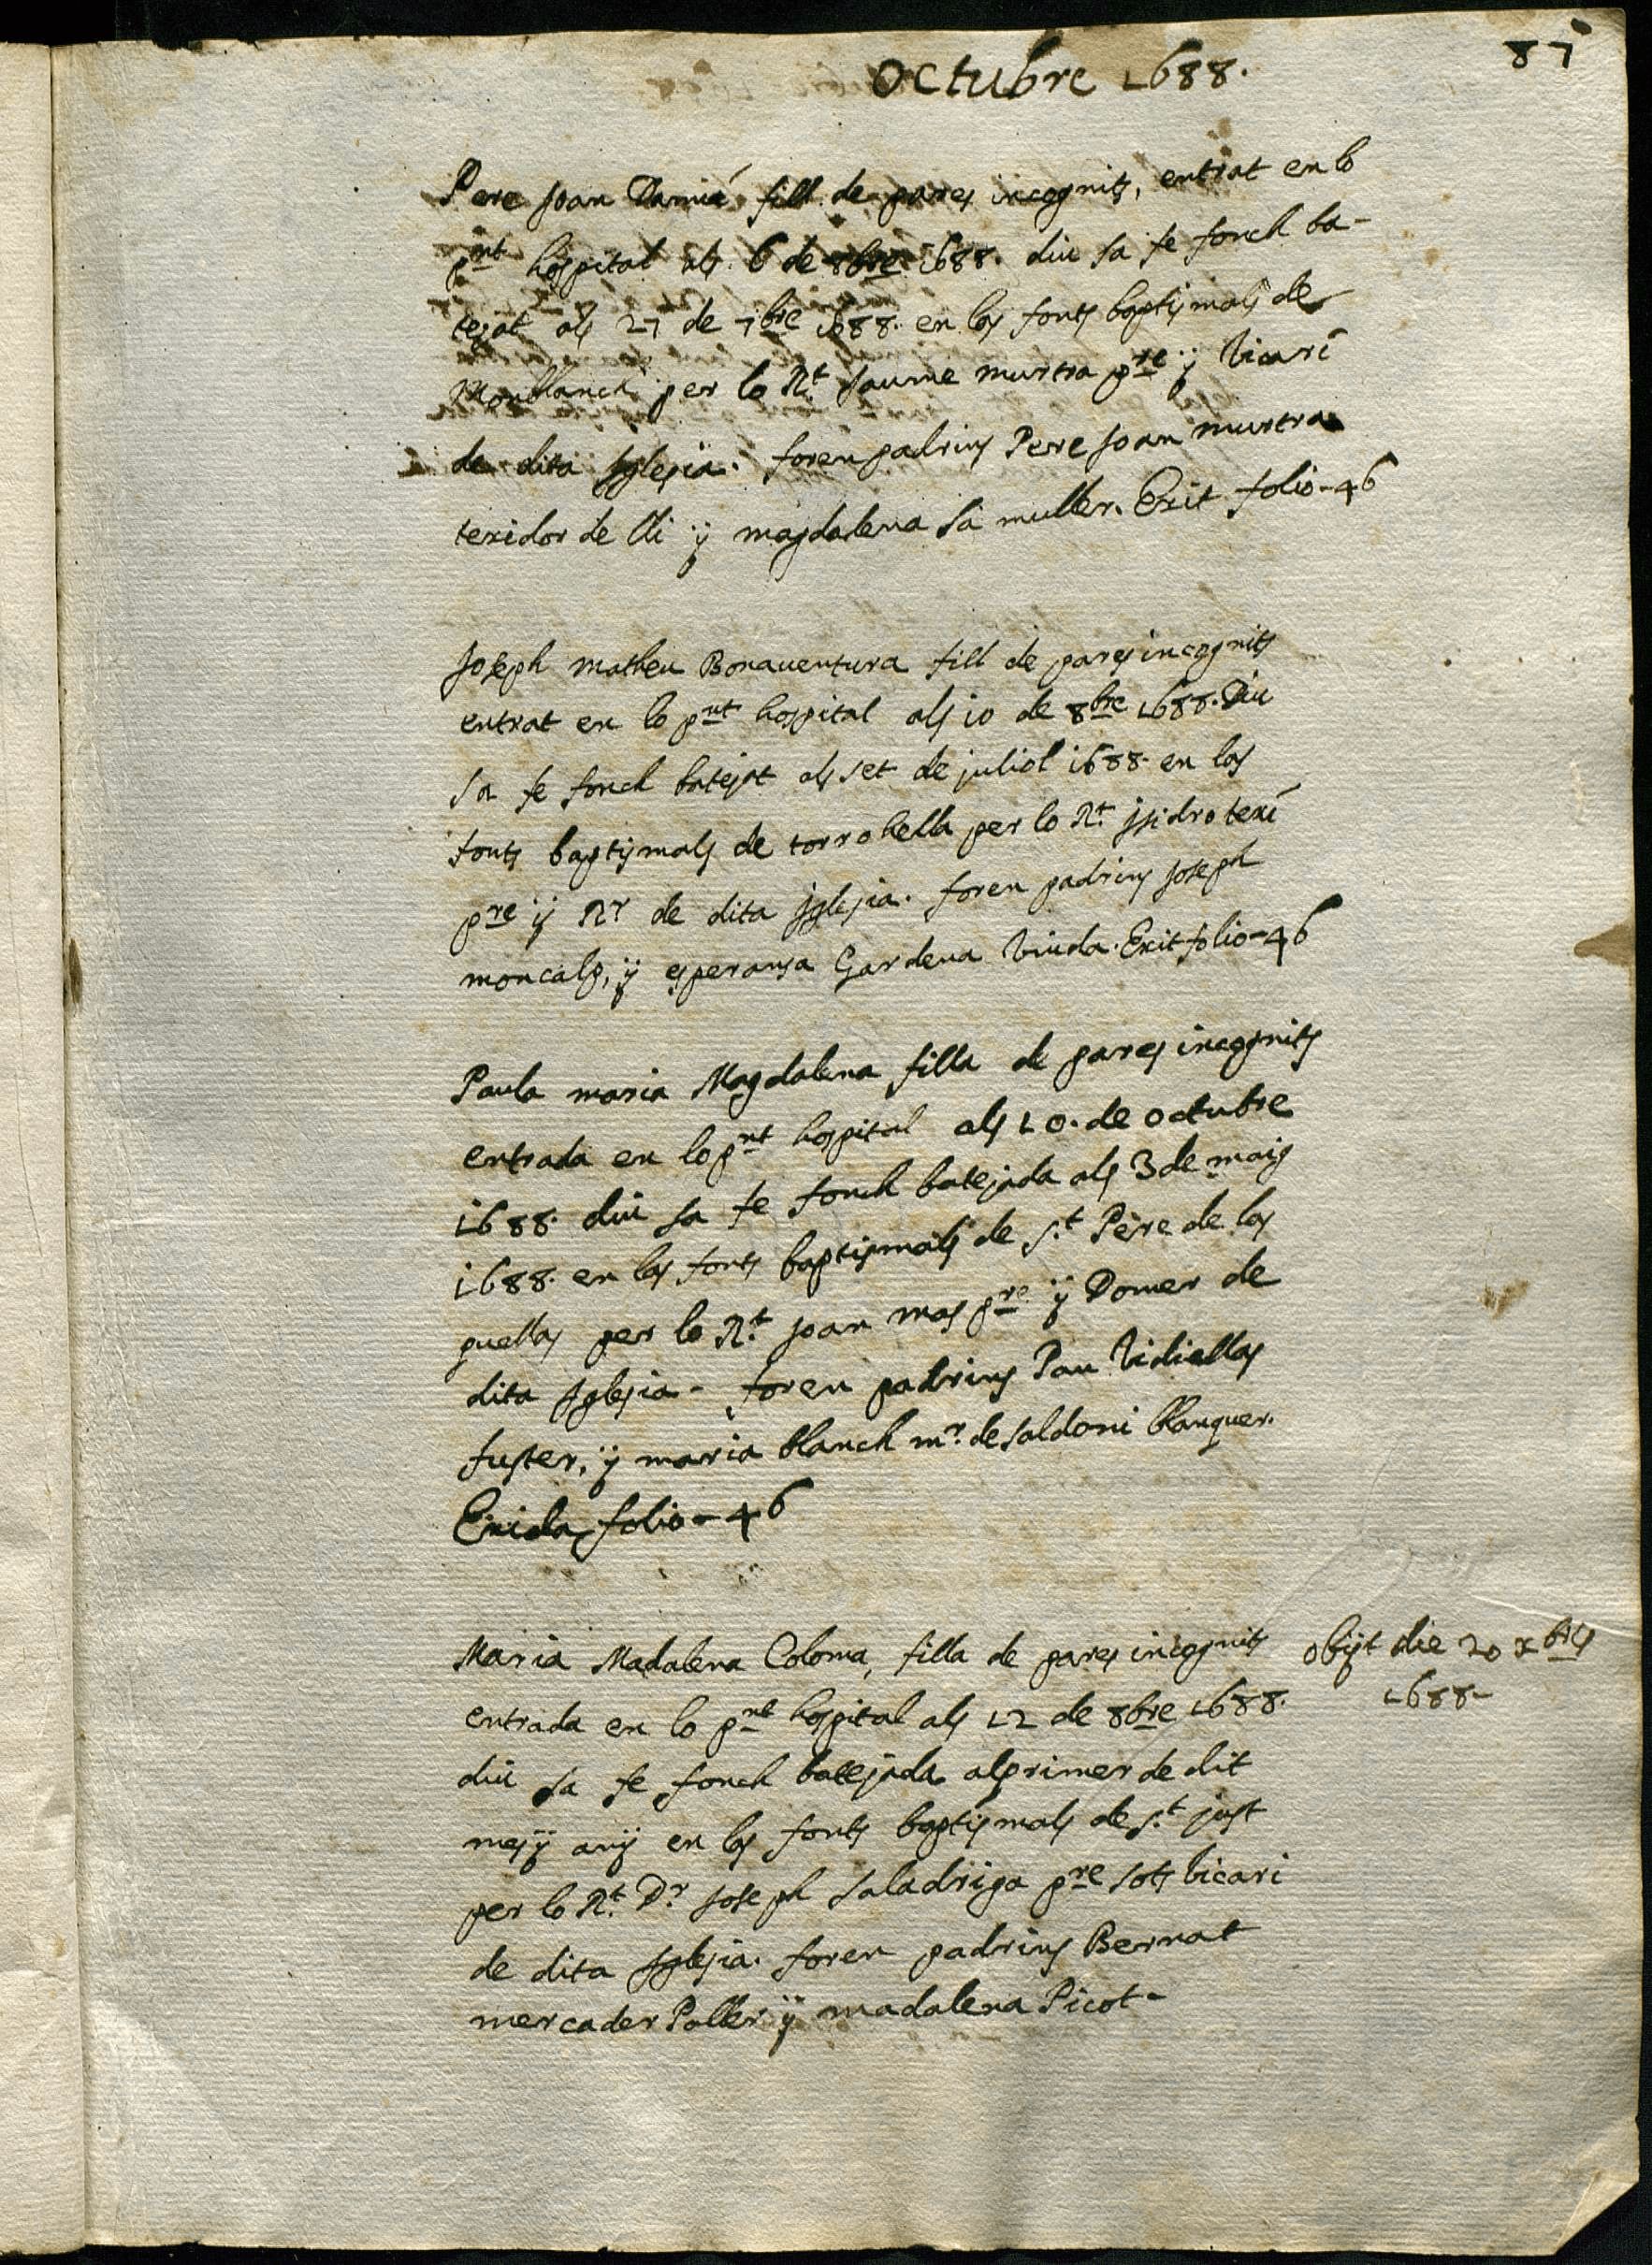 Octubre 1688.
87
Pere Joan Damiá fill de pares incognits, entrat en lo
pnt hospital als 6 de 8bre 1688. diu sa fe fonch ba-
tejat als 27 de 7bre 1688. en las fonts baptismals de
Monblanch per lo Rt. Jaume murtra pre ÿ Vicari
de dita Iglesia. foren padrins Pere Joan murtra
texidor de lli ÿ magdalena sa muller. Exit folio-46
Joseph matheu Bonaventura fill de pares incognits
entrat en lo pnt hospital als 10 de 8bre 1688. Diu
sa fe fonch batejat als set de juliol 1688. en las
fonts baptismals de torroella per lo Rt. Isidro texi
pre ÿ Rr de dita Iglesia. foren padrins Joseph
moncalp, ÿ esperansa Gardena Viuda. Exit folio-46
Paula maria Magdalena filla de pares incognits
entrada en lo pnt hospital als 10. de octubre
1688. diu sa fe fonch batejada als 3 de maig
1688. en las fonts baptismals de St. Pere de las
puellas per lo Rt. Joan mas pre ÿ Domer de
dita Iglesia- foren padrins Pau Vidiellas
fuster, ÿ maria blanch mr. de saldoni blanquer.
Exida folio-46
Maria Madalena Coloma, filla de pares incognits
entrada en lo pnt hospital als 12 de 8bre 1688.
diu sa fe fonch batejada al primer de dit
mes ÿ anÿ en las fonts baptismals de St. just
per lo Rt. Dr. Joseph Saladriga pre sots vicari
de dita Iglesia. foren padrins Bernat
mercader Paller ÿ madalena Picot-
obijt die 20 xbris
1688-